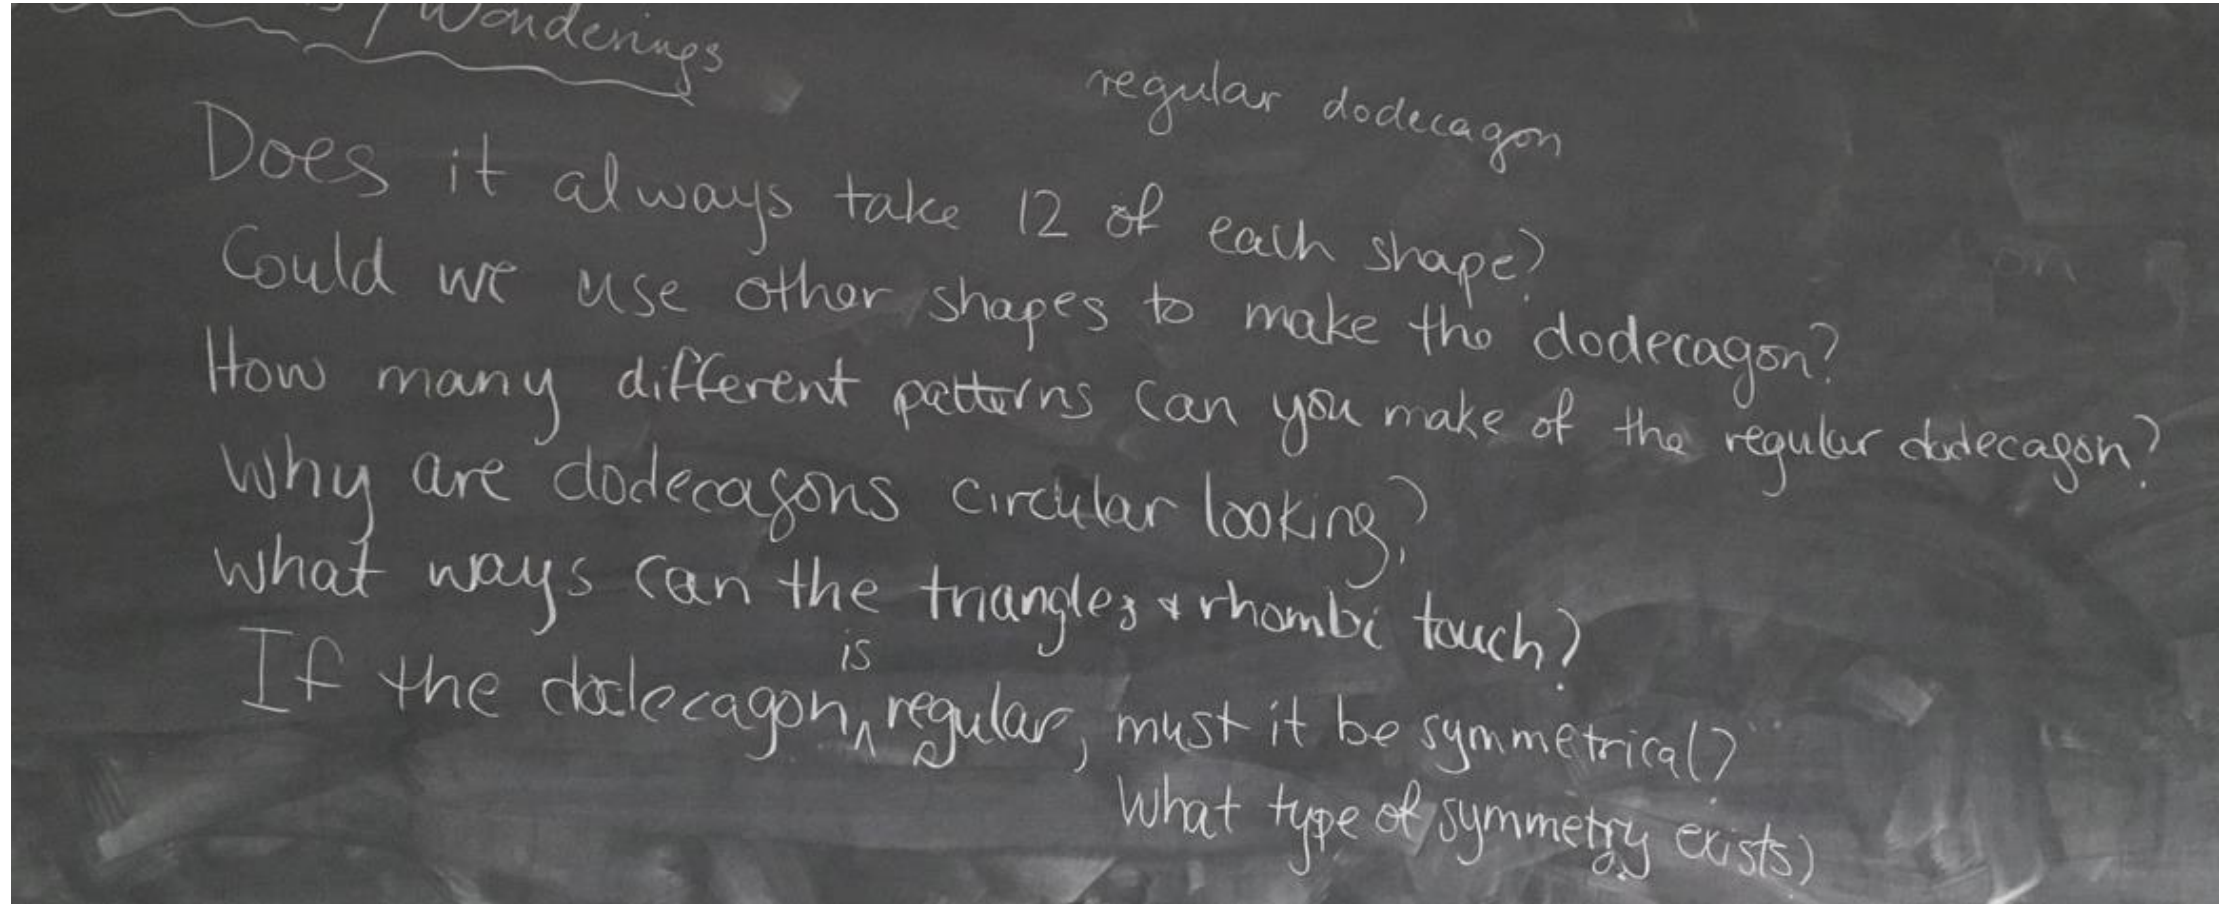 / Wonderings
regular dodecagon
Does it always take 12 of each shape?
Could we use other shapes to make the dodecagon?
How many different patterns can you make of the regular dodecagon?
Why are dodecagons circular looking?
What ways can the triangles & rhombi touch?
If the dodecagon ^ is regular, must it be symmetrical?
What type of symmetry exists?
on